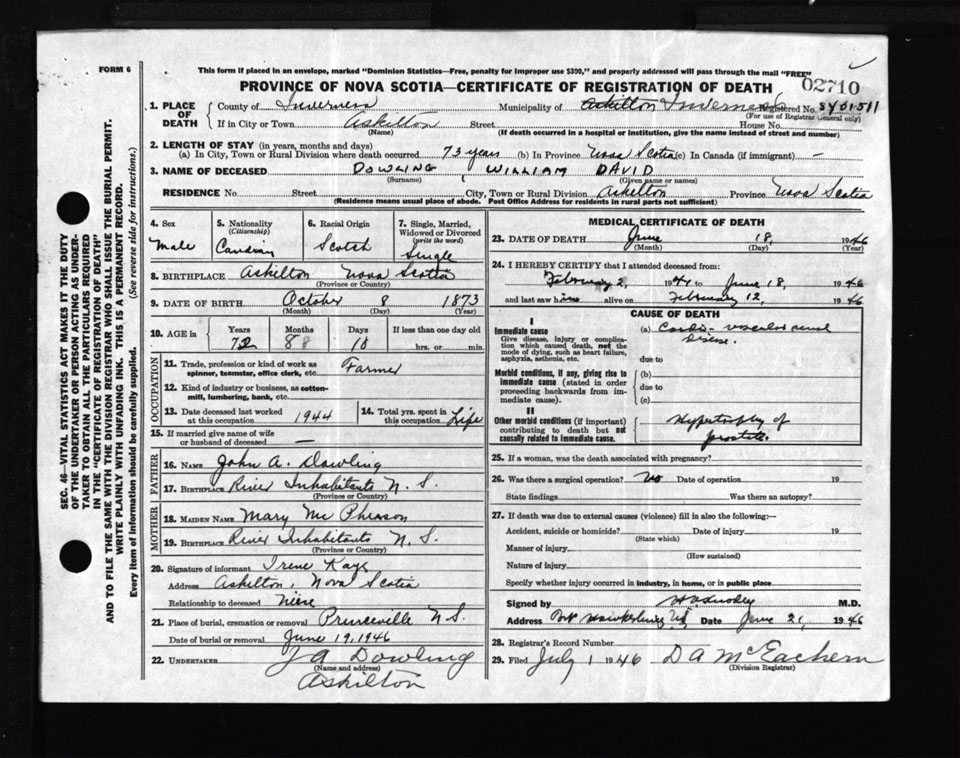 FORM 6
This form if placed in an envelope, marked "Dominion Statistics—Free, penalty for improper use $300," and properly addressed will pass through the mail "FREE"
PROVINCE OF NOVA SCOTIA—CERTIFICATE OF REGISTRATION OF DEATH
02710
1. PLACE OF DEATH
County of Inverness Municipality of Askilton Inverness Registered No.
(For use of Registrar General only)
If in City or Town Askilton Street House No.
(Name) (If death occurred in a hospital or institution, give the name instead of street and number)
2. LENGTH OF STAY (in years, months and days)
(a) In City, Town or Rural Division where death occurred 73 years (b) In Province Nova Scotia (c) In Canada (if immigrant) —
3. NAME OF DECEASED DOWLING, WILLIAM DAVID
(Surname) (Given name or names)
RESIDENCE No. Street City, Town or Rural Division Askilton Province Nova Scotia
(Residence means usual place of abode. Post Office Address for residents in rural parts not sufficient)
4. Sex
Male
5. Nationality
(Citizenship)
6. Racial Origin
Scotch
7. Single, Married, Widowed or Divorced
(write the word)
Single
8. BIRTHPLACE Askilton Nova Scotia
(Province or Country)
9. DATE OF BIRTH October 8 1873
(Month) (Day) (Year)
10. AGE in
Years Months Days If less than one day old
72 8 10 hrs. or min.
OCCUPATION
11. Trade, profession or kind of work as spinner, teamster, office clerk, etc. Farmer
12. Kind of industry or business, as cotton-mill, lumbering, bank, etc.
13. Date deceased last worked at this occupation 1944
14. Total yrs. spent in this occupation Life
15. If married give name of wife or husband of deceased —
FATHER
16. NAME John A. Dowling
17. BIRTHPLACE River Inhabitants N. S.
(Province or Country)
MOTHER
18. MAIDEN NAME Mary Mc Pherson
19. BIRTHPLACE River Inhabitants N. S.
(Province or Country)
20. Signature of informant Irene Kaye
Address Askilton, Nova Scotia
Relationship to deceased Niese
21. Place of burial, cremation or removal Princeville N S.
Date of burial or removal June 19, 1946
22. UNDERTAKER J A Dowling
(Name and address)
Askilton
MEDICAL CERTIFICATE OF DEATH
23. DATE OF DEATH June 18, 1946
(Month) (Day) (Year)
24. I HEREBY CERTIFY that I attended deceased from:
February 2, 1941 to June 18, 1946
and last saw him alive on February 12, 1946
CAUSE OF DEATH
I
Immediate cause
Give disease, injury or complication which caused death, not the mode of dying, such as heart failure, asphyxia, asthenia, etc.
(a) Cardio-vascular renal disease.
due to
Morbid conditions, if any, giving rise to immediate cause (stated in order proceeding backwards from immediate cause).
(b)
due to
(c)
II
Other morbid conditions (if important) contributing to death but not causally related to immediate cause.
Hypertrophy of prostate.
25. If a woman, was the death associated with pregnancy?
26. Was there a surgical operation? No Date of operation 19
State findings Was there an autopsy?
27. If death was due to external causes (violence) fill in also the following:—
Accident, suicide or homicide? Date of injury 19
(State which)
Manner of injury
(How sustained)
Nature of injury
Specify whether injury occurred in industry, in home, or in public place
Signed by M.D.
Address Port Hawkesbury NS Date June 21, 1946
28. Registrar's Record Number
29. Filed July 1 1946 D A McEachern
(Division Registrar)
SEC. 46—VITAL STATISTICS ACT MAKES IT THE DUTY
OF THE UNDERTAKER OR PERSON ACTING AS UNDERTAKER
TO OBTAIN ALL THE PARTICULARS REQUIRED
IN THE "CERTIFICATE OF REGISTRATION OF DEATH"
AND TO FILE THE SAME WITH THE DIVISION REGISTRAR WHO SHALL ISSUE THE BURIAL PERMIT.
WRITE PLAINLY WITH UNFADING INK. THIS IS A PERMANENT RECORD.
Every item of information should be carefully supplied. (See reverse side for instructions.)